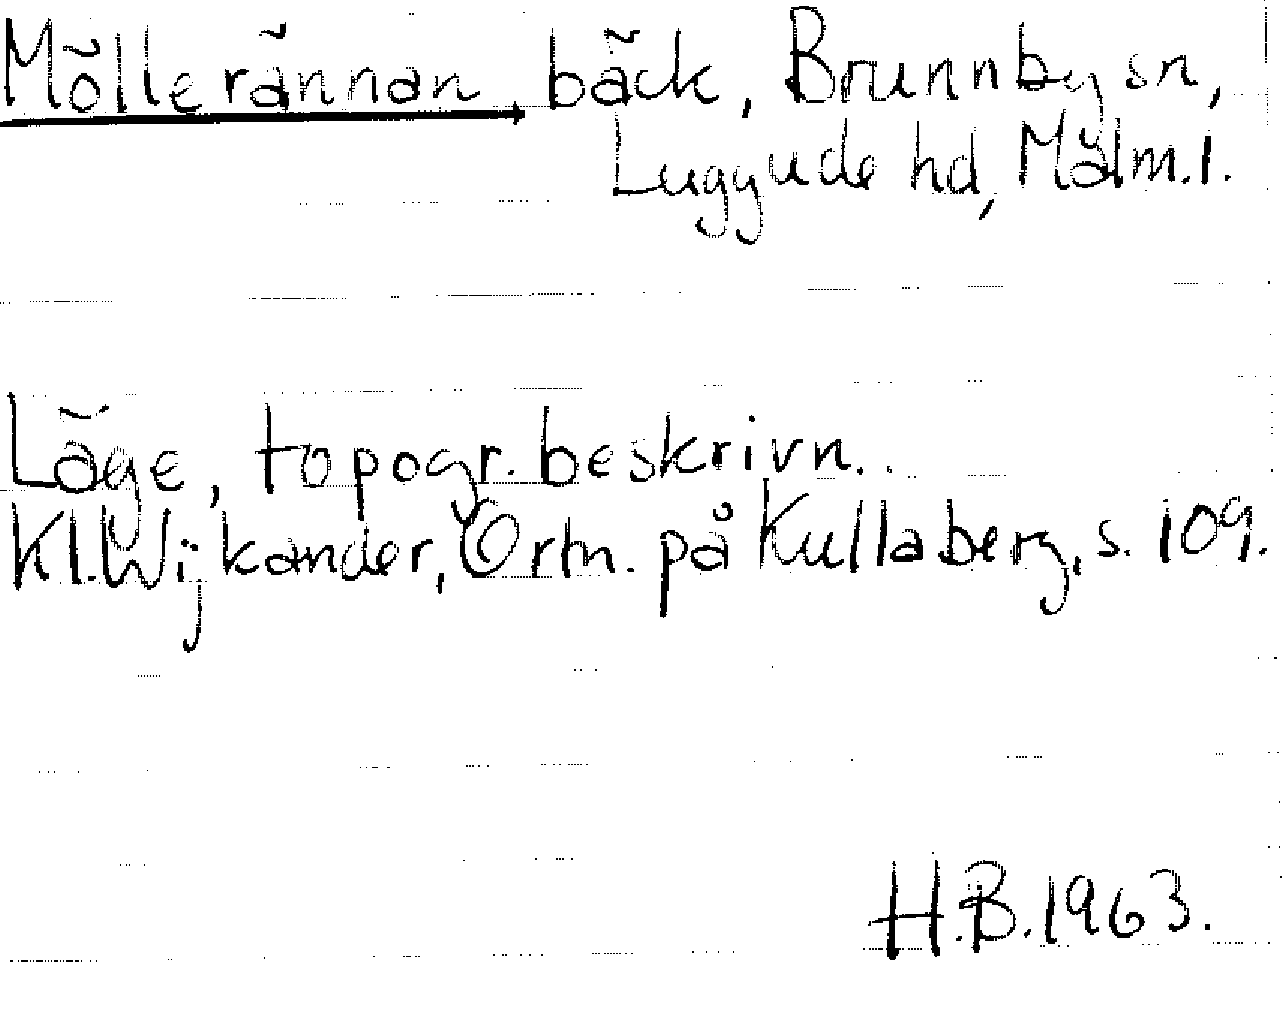 Möllerännan bäck, Brunnby sn,
Luggude hd, Malm. l.
Läge, topogr. beskrivn.
Kl. Wijkander, Ortn. på Kullaberg, s. 109.
H.B. 1963.